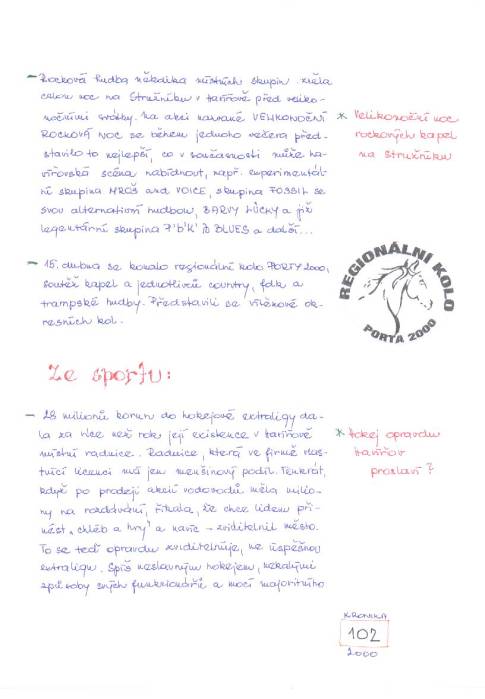 - Rocková hudba několika místních skupin zněla
celou noc na Stružníku v Havířově před veliko-
nočními svátky. Na akci nazvané VELIKONOČNÍ
ROCKOVÁ NOC se během jednoho večera před-
stavilo to nejlepší, co v současnosti může ha-
vířovská scéna nabídnout, např. experimentál-
ní skupina MROŠ and VOICE, skupina FOSSIL se
svou alternativní hudbou, BARVY LŮCKY a již
legentární skupina BLUES a další...
* Velikonoční noc
rockových kapel
na Stružníku
- 15. dubna se konalo regionální kolo PORTY 2000,
soutěž kapel a jednotlivců country, folk a
trampské hudby. Představili se vítězové ok-
resních kol.
REGIONÁLNI KOLO
PORTA 2000
Ze sportu:
- 28 milionů korun do hokejové extraligy da-
la za více než rok její existence v Havířově
místní radnice. Radnice, která ve firmě vlas-
tnící licenci má jen menšinový podíl. Tenkrát,
když po prodeji akcií vodovodů měla milio-
ny na rozdávání, říkala, že chce lidem při-
nést „chléb a hry" a navíc - zviditelnit město.
To se teď opravdu zviditelňuje, ne úspěšnou
extraligou. Spíš neslavným hokejem, nekalými
způsoby svých funkcionářů a mocí majoritního
* Hokej opravdu
Havířov
proslaví?
KRONIKA
102
2000